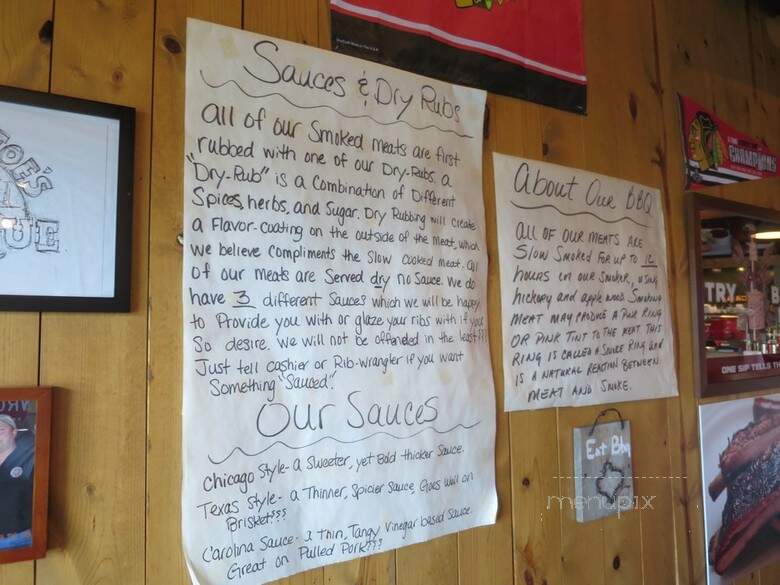 Sauces & Dry Rubs
All of our Smoked meats are first
rubbed with one of our Dry-Rubs. a
"Dry-Rub" is a Combination of Different
Spices, herbs, and Sugar. Dry Rubbing will create
a Flavor-coating on the outside of the meat, which
we believe Compliments the Slow cooked meat. all
of our meats are Served dry no Sauce. We do
have 3 different Sauces which we will be happy
to Provide you with or glaze your ribs with if you
So desire. We will not be offended in the least???
Just tell cashier or Rib-Wrangler if you want
Something "Sauced".
Our Sauces
Chicago Style- a Sweeter, yet Bold thicker Sauce.
Texas Style- a Thinner, Spicier Sauce, Goes well on
Brisket???
Carolina Sauce- a thin, Tangy Vinegar based Sauce.
Great on Pulled Pork???
About Our BBQ
ALL OF OUR MEATS ARE
Slow Smoked FOR UP TO 12
hours on our Smoker, using
hickory and apple wood. Smoking
MEAT MAY PRODUCE A PINK RING
OR PINK TINT TO THE MEAT THIS
RING IS CALLED A SMOKE RING AND
IS A NATURAL REACTION BETWEEN
MEAT AND SMOKE.
OE'S
UE
CHAMPIONS
TRY
B
ONE SIP TELLS TH
Eat BBQ
menupix